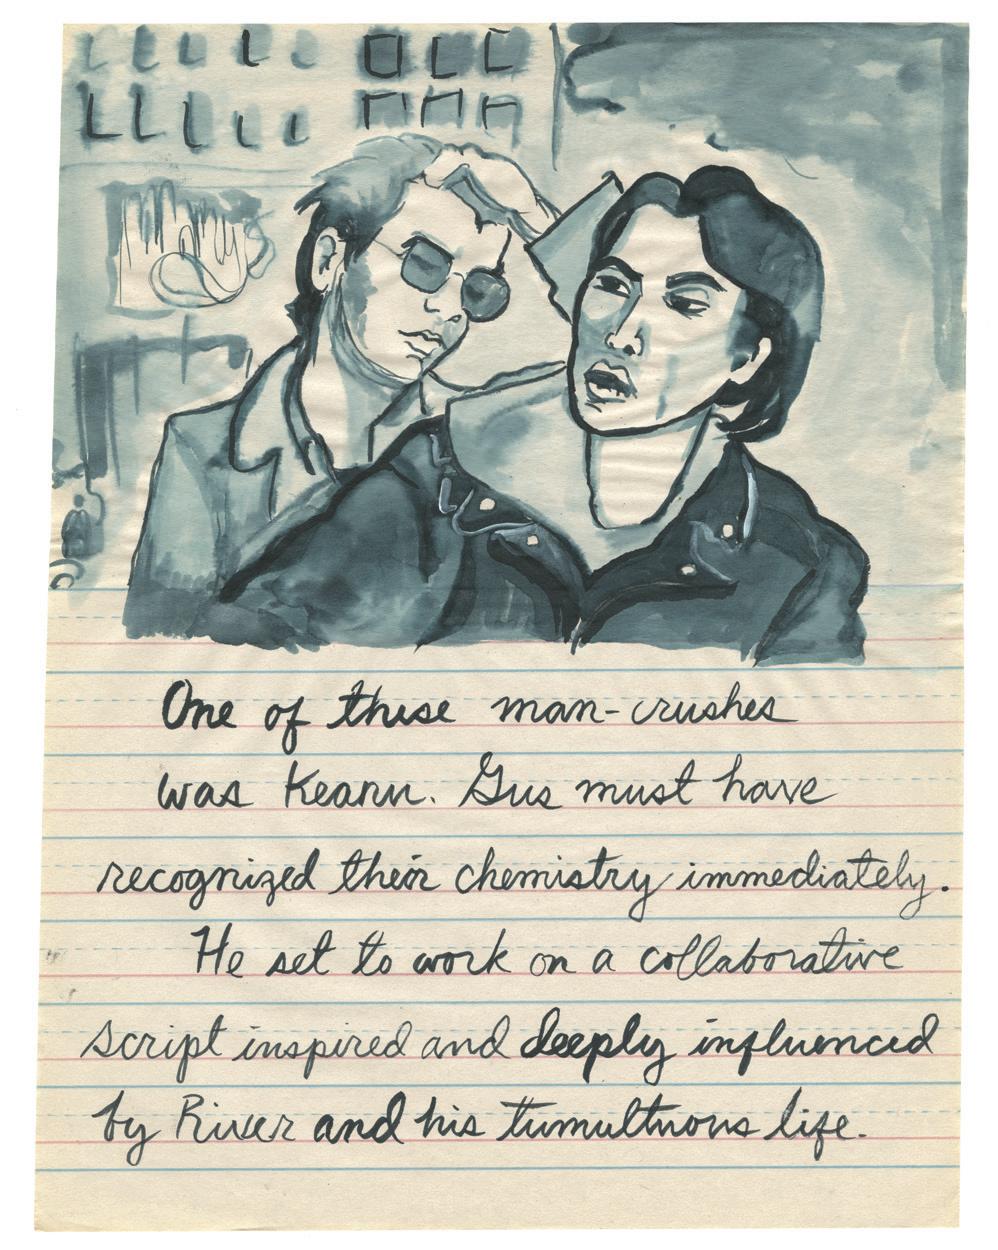 One of these man-crushes
was Keanu. Gus must have
recognized their chemistry immediately.
He set to work on a collaborative
script inspired and deeply influenced
by River and his tumultuous life.